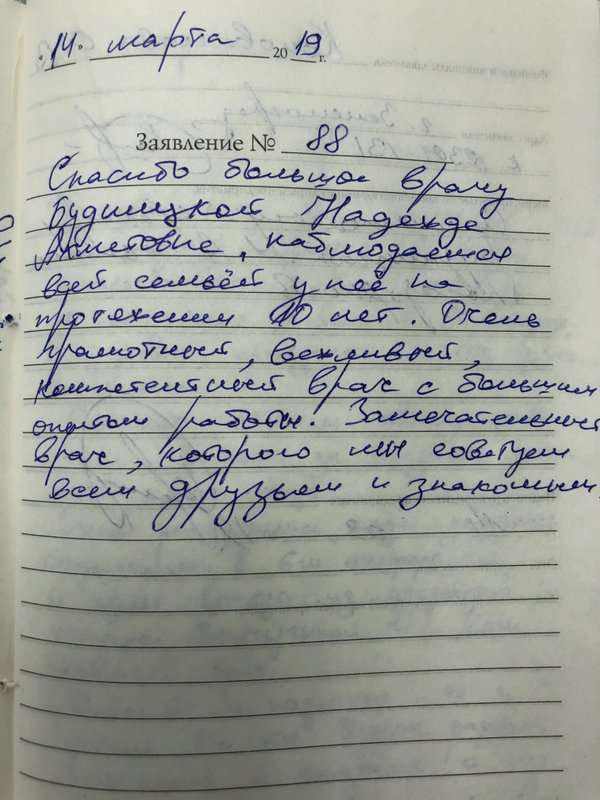 "14" марта 2019 г.
Заявление № 88
Спасибо большое врачу
Будницкой Надежде
Ахметовне, наблюдаемся
всей семьёй у неё на
протяжении 10 лет. Очень
грамотный, вежливый,
компетентный врач с большим
опытом работы. Замечательный
врач, которого мы советуем
всем друзьям и знакомым.